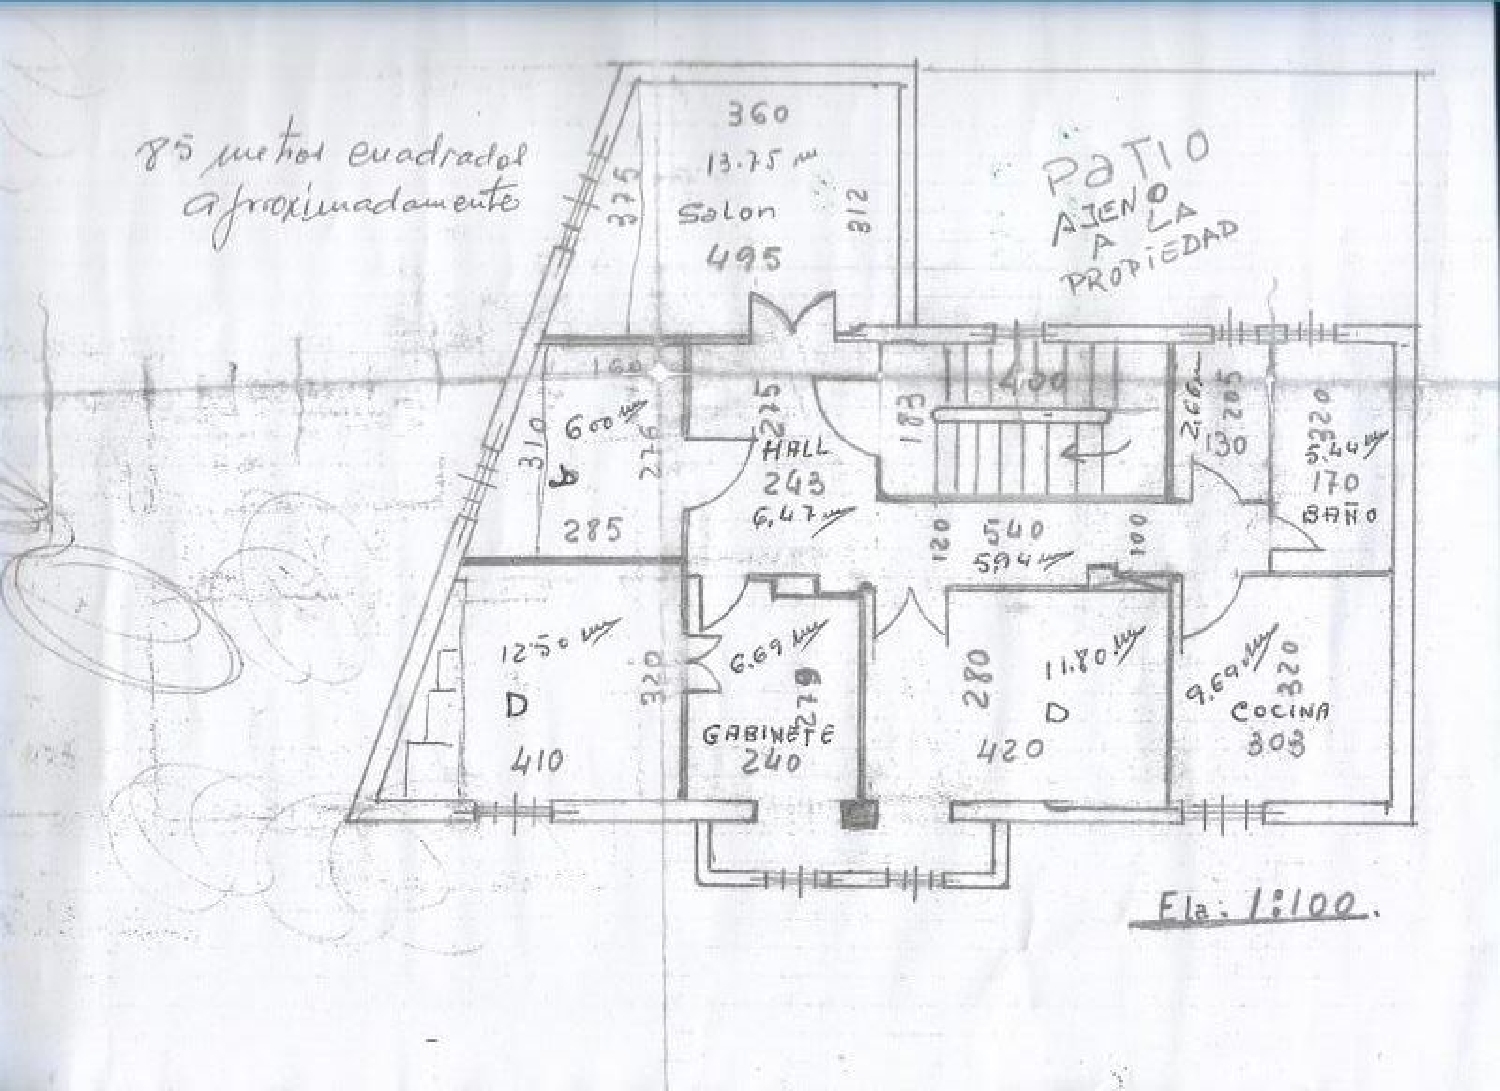 85 metros cuadrados
aproximadamente
360
13.75 m
Salon
495
375
312
PATIO
AJENO
A LA
PROPIEDAD
160
6.00 m
310
276
285
275
HALL
243
6,47 m
183
400
2.66 m
205
130
320
5.44 m
170
BAÑO
120
540
5,94 m
100
12.50 m
320
D
410
6.69 m
279
GABINETE
240
280
11.80 m
D
420
9,69 m
320
COCINA
303
Ela: 1:100.